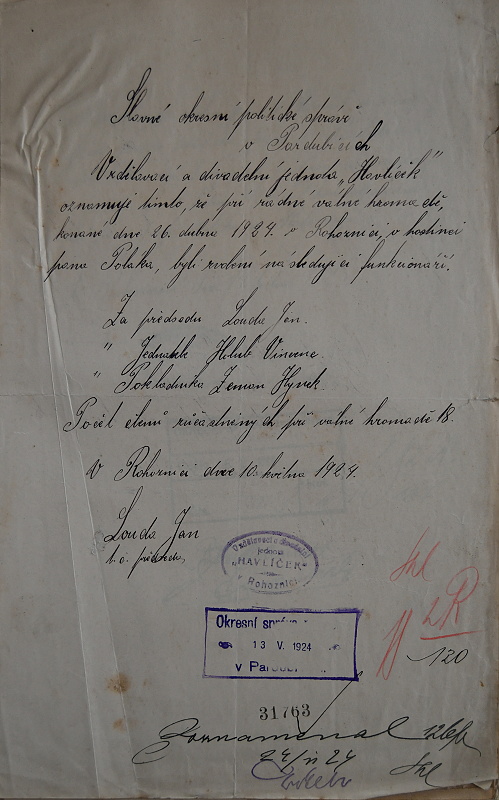 Slavné okresní politické správě
v Pardubicích
Vzdělavací a divadelní jednota „Havlíček“
oznamuje tímto, že při řádné valné hromadě,
konané dne 26. dubna 1924. v Rohoznici, v hostinci
pana Poláka, byli zvoleni následující funkcionáři.
Za předsedu Louda Jan.
" Jednatele Holub Vincenc.
" Pokladníka Zeman Hynek.
Počet členů zúčastněných při valné hromadě 18.
V Rohoznici dne 10. května 1924.
Louda Jan
t. č. předseda,
Vzdělavací a divadelní
jednota
"HAVLÍČEK"
v Rohoznici
Okresní správa
13 V. 1924
v Pardubi
2R
120
31763
Poznamenal
24/5 24